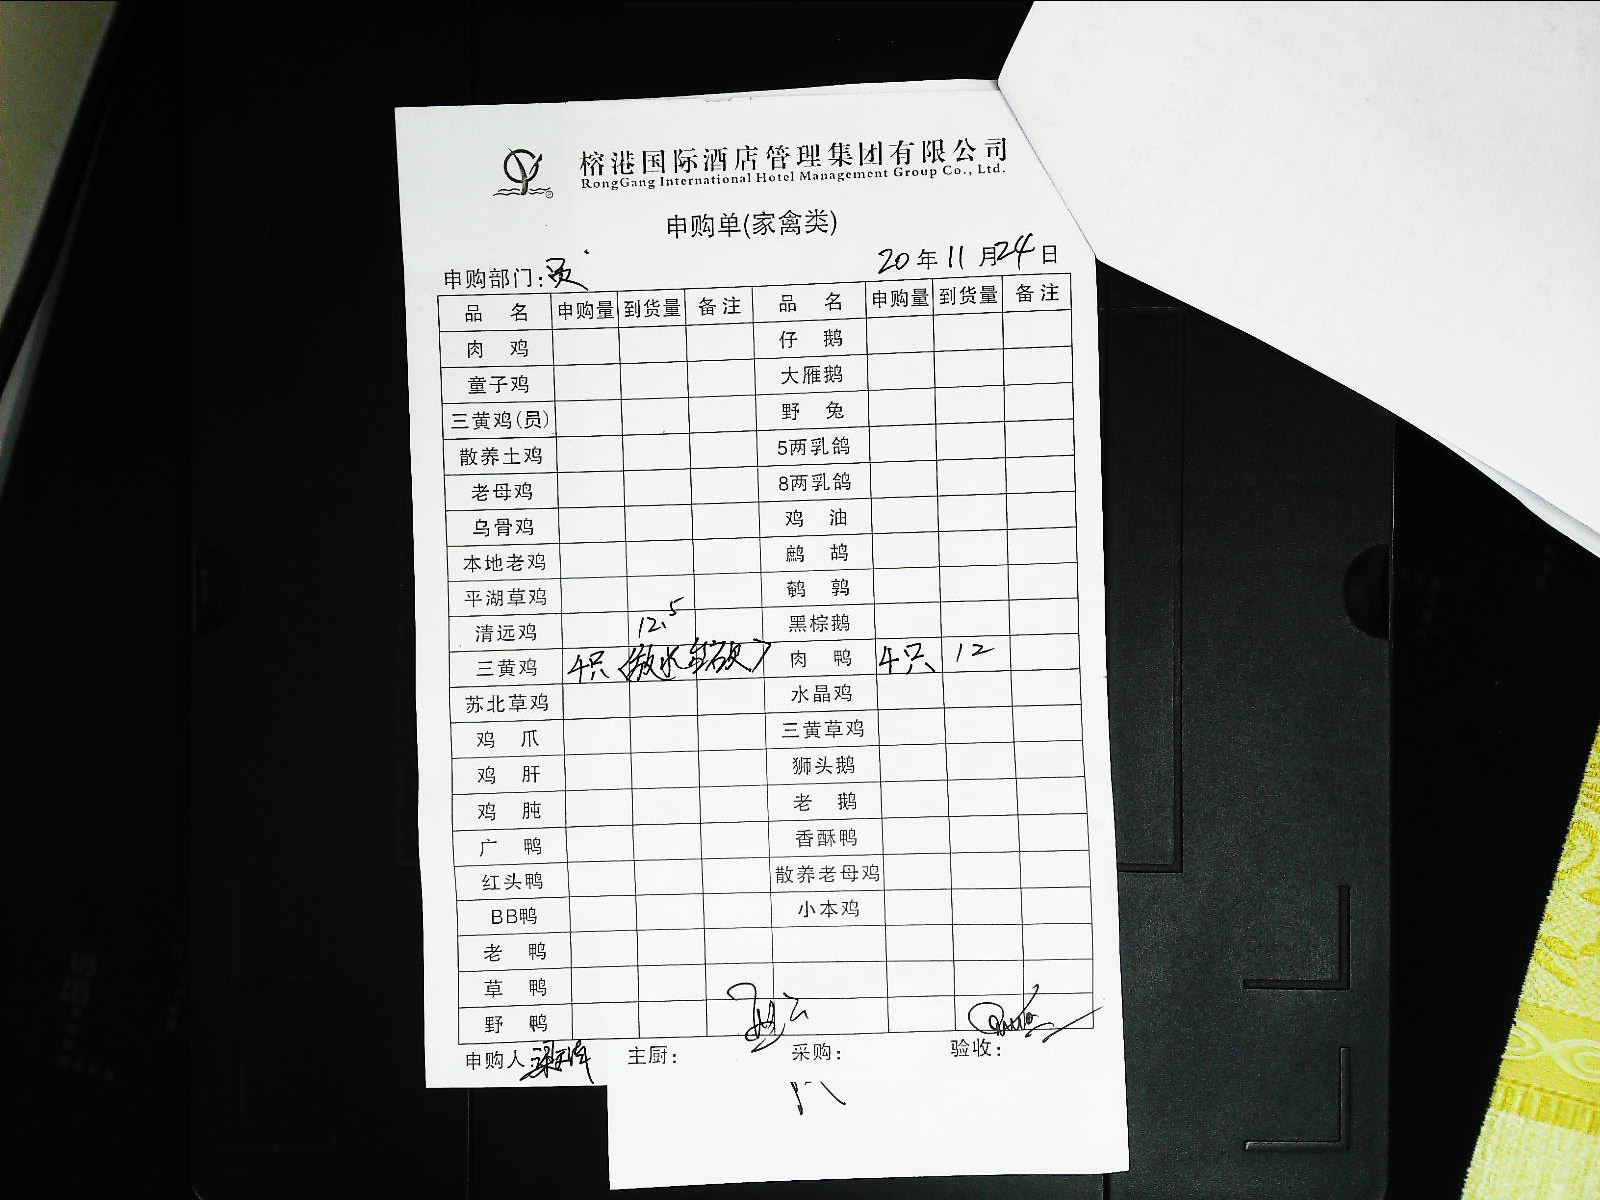 榕港国际酒店管理集团有限公司
RongGang International Hotel Management Group Co., Ltd.
申购单(家禽类)
申购部门:员 20年11月24日
品名 申购量 到货量 备注 品名 申购量 到货量 备注
肉鸡 仔鹅
童子鸡 大雁鹅
三黄鸡(员) 野兔
散养土鸡 5两乳鸽
老母鸡 8两乳鸽
乌骨鸡 鸡油
本地老鸡 鹧鸪
平湖草鸡 鹌鹑
清远鸡 黑棕鹅
12.5
三黄鸡 4只 肉鸭 4只 12
苏北草鸡 水晶鸡
鸡爪 三黄草鸡
鸡肝 狮头鹅
鸡肫 老鹅
广鸭 香酥鸭
红头鸭 散养老母鸡
BB鸭 小本鸡
老鸭
草鸭
野鸭
申购人: 主厨: 采购: 验收: